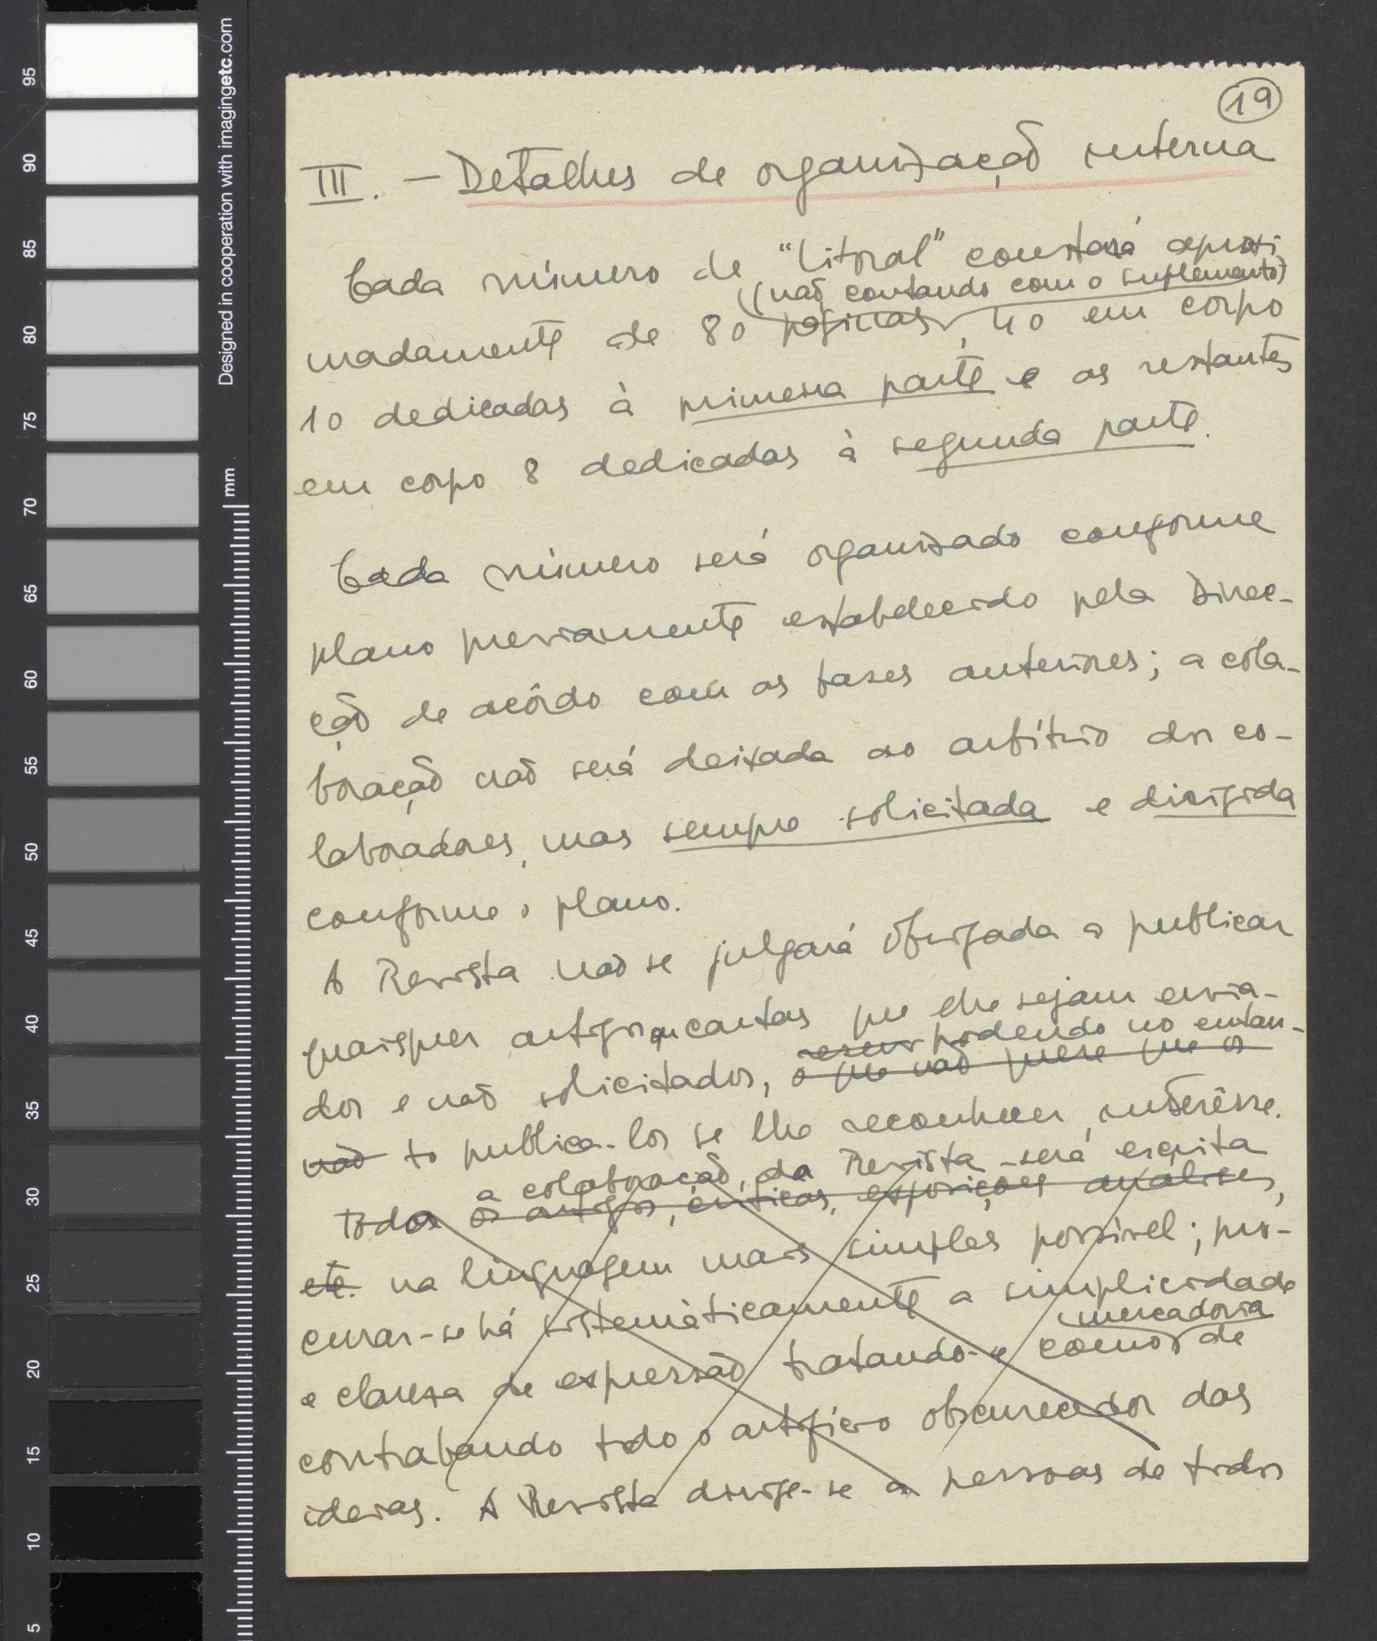 19
III. — Detalhes de organização interna
Cada número de "Litoral" constará aproxi
(não contando com o suplemento)
madamente de 80 páginas, 40 em corpo
10 dedicadas à primeira parte e as restantes
em corpo 8 dedicadas à segunda parte.
Cada número será organizado conforme
plano previamente estabelecido pela Direc-
ção de acôrdo com as bases anteriores; a cola-
boração não será deixada ao arbítrio dos co-
laboradores, mas sempre solicitada e dirigida
conforme o plano.
A Revista não se julgará obrigada a publicar
quaisquer artigos ou cartas que lhe sejam envia-
podendo no entan-
dos e não solicitados, o que não quere que os
não to publica-los se lhe reconhecer interêsse.
a colaboração da Revista será escrita
Todos os artigos, críticas, exposições análises,
etc. na linguagem mais simples possível; pro-
curar-se há sistemàticamente a simplicidade
mercadoria
e clareza de expressão tratando-se como de
contrabando todo o artifício obscurecedor das
ideias. A Revista dirige-se a pessoas de todos
Designed in cooperation with imagingetc.com
mm
95
90
85
80
75
70
65
60
55
50
45
40
35
30
25
20
15
10
5